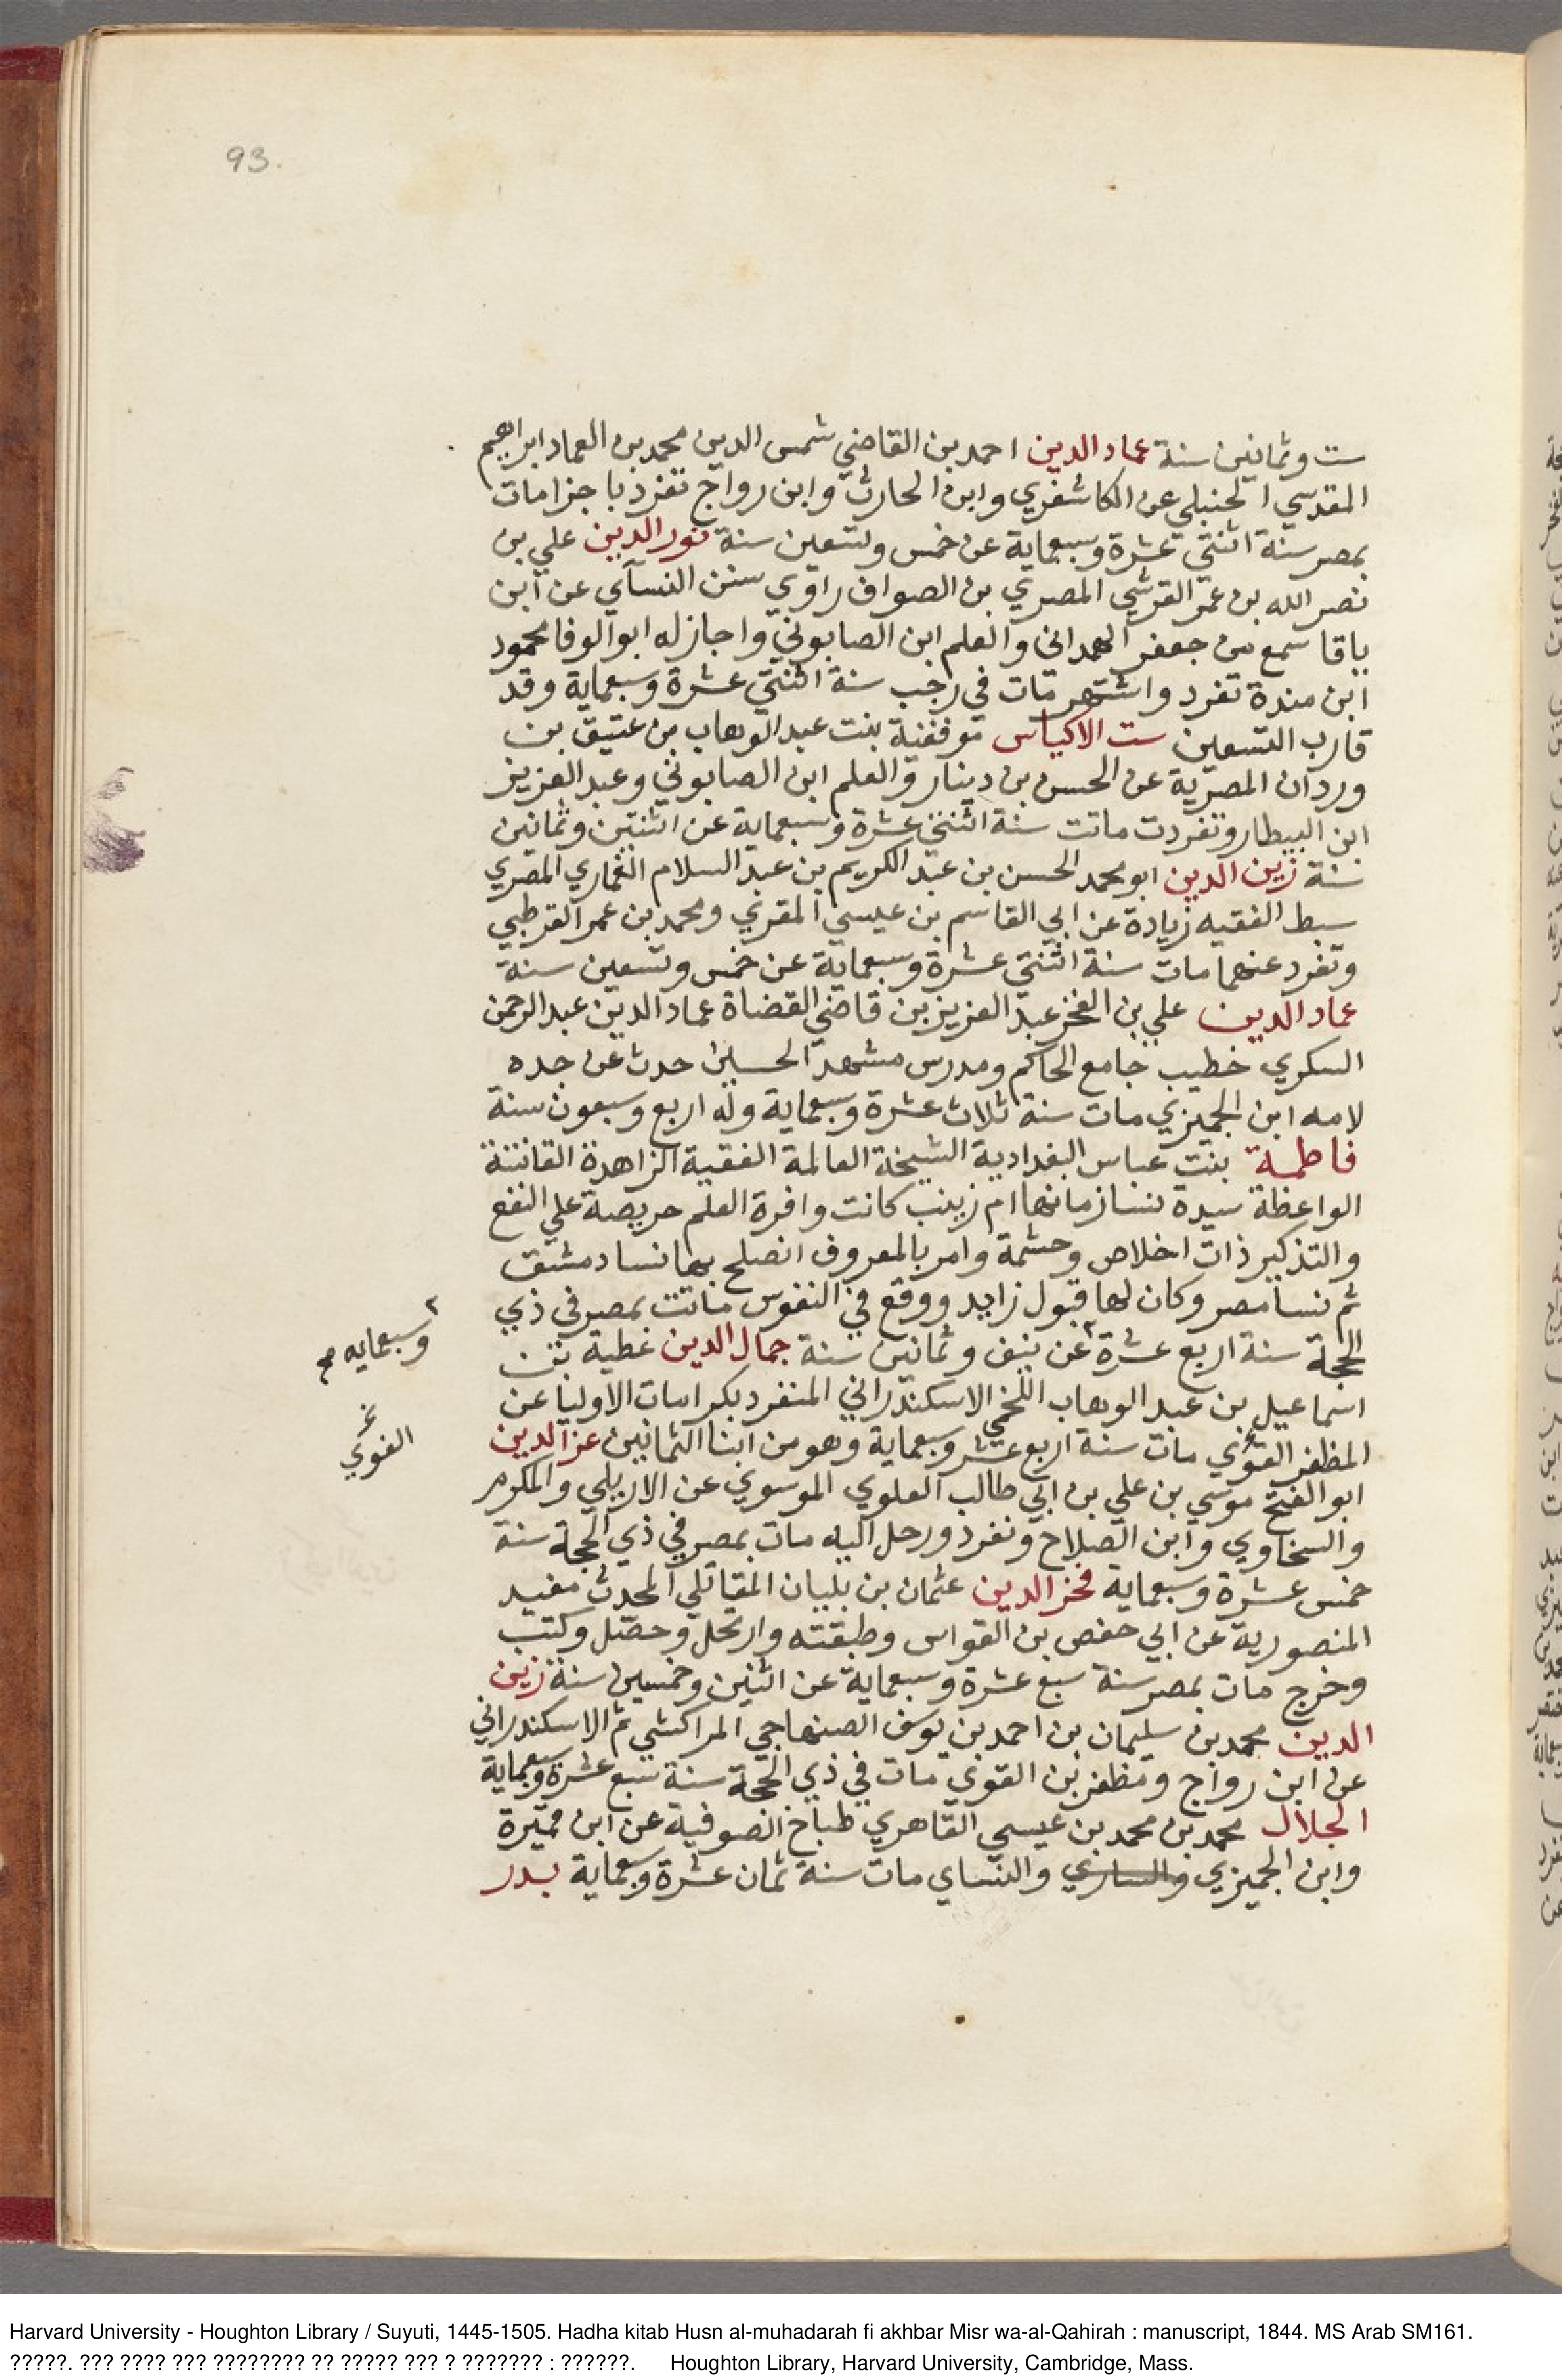 93.
ست وثمانين سنة عماد الدين احمد بن القاضي شمس الدين محمد بن العماد ابراهيم
المقدسي الحنبلي عن الكاشغري وابن الحارث وابن رواج تفرد باجزا مات
بمصر سنة اثنتي عشرة وسبعماية عن خمس وتسعين سنة نور الدين علي بن
نصر الله بن عمر القرشي المصري بن الصواف راوي سنن النسآي عن ابن
باقا سمع من جعفر الهمداني والعلم ابن الصابوني واجاز له ابوالوفا محمود
ابن مندة تفرد واشتهر مات في رجب سنة اثنتي عشرة وسبعماية وقد
قارب التسعين ست الاكياس موفقية بنت عبد الوهاب بن عتيق بن
وردان المصرية عن الحسن بن دينار والعلم ابن الصابوني وعبد العزيز
ابن البيطار وتفردت ماتت سنة اثنتي عشرة وسبعماية عن اثنتين وثمانين
سنة زين الدين ابو محمد الحسن بن عبد الكريم بن عبد السلام الغماري المصري
سبط الفقيه زيادة عن ابي القاسم بن عيسي المقري ومحمد بن عمر القرطبي
وتفرد عنهما مات سنة اثنتي عشرة وسبعماية عن خمس وتسعين سنة
عماد الدين علي بن الفخر عبد العزيز بن قاضي القضاة عماد الدين عبد الرحمن
السكري خطيب جامع الحاكم ومدرس مشهد الحسين حدث عن جده
لامه ابن الجميزي مات سنة ثلاث عشرة وسبعماية وله اربع وسبعون سنة
فاطمة بنت عباس البغدادية الشيخة العالمة الفقيه الزاهدة القانتة
الواعظة سيدة نسا زمانها ام زينب كانت وافرة العلم حريصة علي النفع
والتذكير ذات اخلاص وحشمة وامر بالمعروف انصلح بها نسا دمشق
ثم نسا مصر وكان لها قبول زايد ووقع في النفوس ماتت بمصر في ذي
الحجة سنة اربع عشرة ٢ عن نيف وثمانين سنة جمال الدين عطية بن
٢ وسبعمايه
اسماعيل بن عبد الوهاب اللخمي الاسكندراني المنفرد بكرامات الاوليا عن
المظفر الفوي مات سنة اربع عشر وسبعماية وهو من ابنا الثمانين عز الدين
الفوي
ابو الفتح موسي بن علي بن ابي طالب العلوي الموسوي عن الاربلي والمكرم
والسخاوي وابن الصلاح وتفرد ورحل اليه مات بمصر في ذي الحجة سنة
خمس عشرة وسبعماية فخر الدين عثمان بن بلبان المقاتلي المحدث مفيد
المنصورية عن ابي حفص بن القواس وطبقته وارتحل وحصّل وكتب
وخرج مات بمصر سنة سبع عشرة وسبعماية عن اثنين وخمسين سنة زين
الدين محمد بن سليمان بن احمد بن يوسف الصنهاجي المراكشي ثم الاسكندراني
عن ابن رواج ومظفر بن الفوي مات في ذي الحجة سنة سبع عشرة وسبعماية
الجلال محمد بن محمد بن عيسي القاهري طباخ الصوفية عن ابن قميرة
وابن الجميزي والنساي مات سنة ثمان عشرة وسبعماية بدر
Harvard University - Houghton Library / Suyuti, 1445-1505. Hadha kitab Husn al-muhadarah fi akhbar Misr wa-al-Qahirah : manuscript, 1844. MS Arab SM161.
?????. ??? ???? ??? ???????? ?? ????? ??? ? ??????? : ??????. Houghton Library, Harvard University, Cambridge, Mass.